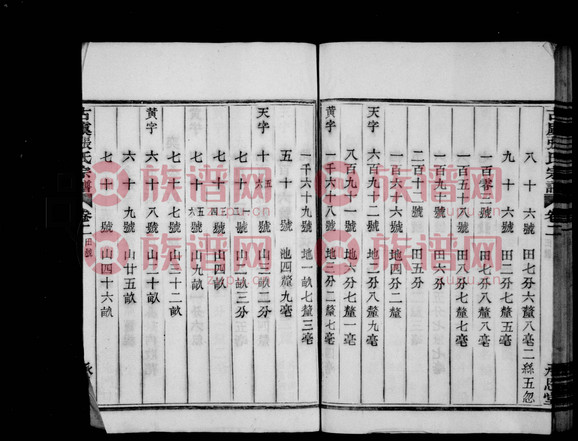 古虞張氏宗譜 卷二
八十六號 田七分六釐八毫二絲五忽
九十六號 田二分七釐五毫
一百零三號 田七分八釐
一百五十八號 田八分七釐
一百九十號 田六分
二百十號 田五分
一百六十六號 地四分二釐
天字 九百九十二號 地二分八釐九毫
八百九十一號 地六分七釐一毫
黃字 一千六十八號 地三分二釐七毫
一千六十九號 地一畝七釐三毫
五十號 池四釐九毫
天字 十五六號 山三畝二分
七十一二三號 山二畝三分
七十三四號 山三畝
七十五六號 山九畝
七十七號 山三十二畝
黃字 六十八號 山十畝
六十九號 山廿五畝
七十號 山四十六畝
古虞張氏宗譜 卷二 田號
族谱网